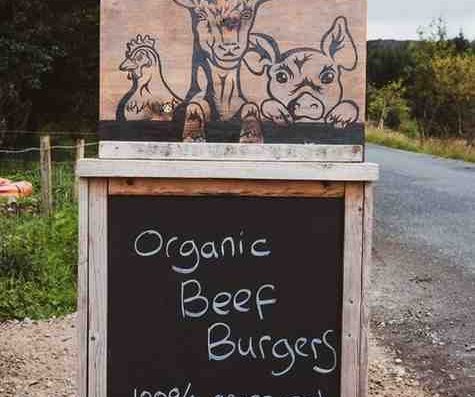 Organic
Beef
Burgers
100%